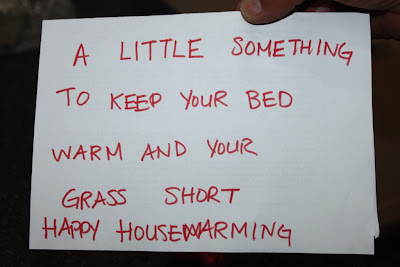 A LITTLE SOMETHING
TO KEEP YOUR BED
WARM AND YOUR
GRASS SHORT
HAPPY HOUSEWARMING